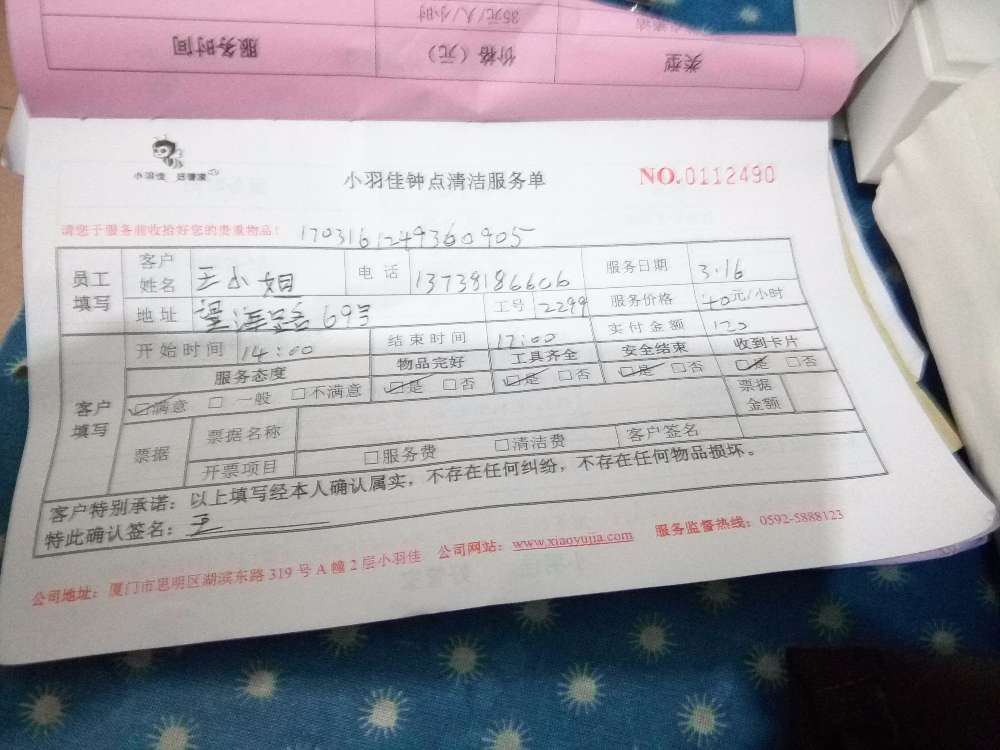 35元/人/小时
类型 价格（元） 服务时间
小羽佳 好管家
小羽佳钟点清洁服务单 NO.0112490
请您于服务前收拾好您的贵重物品！ 1703161249360905
员工填写 客户姓名 王小姐 电话 13738186606 服务日期 3.16
地址 69号 工号 2299 服务价格 40元/小时
开始时间 14:00 结束时间 17:00 实付金额 120
客户填写 服务态度 物品完好 工具齐全 安全结束 收到卡片
☑满意 □一般 □不满意 ☑是 □否 ☑是 □否 ☑是 □否 ☑是 □否
票据 票据名称 票据金额
开票项目 □服务费 □清洁费 客户签名
客户特别承诺：以上填写经本人确认属实，不存在任何纠纷，不存在任何物品损坏。
特此确认签名：王
公司地址：厦门市思明区湖滨东路 319 号 A 幢 2 层小羽佳 公司网站：www.xiaoyujia.com 服务监督热线：0592-5888123